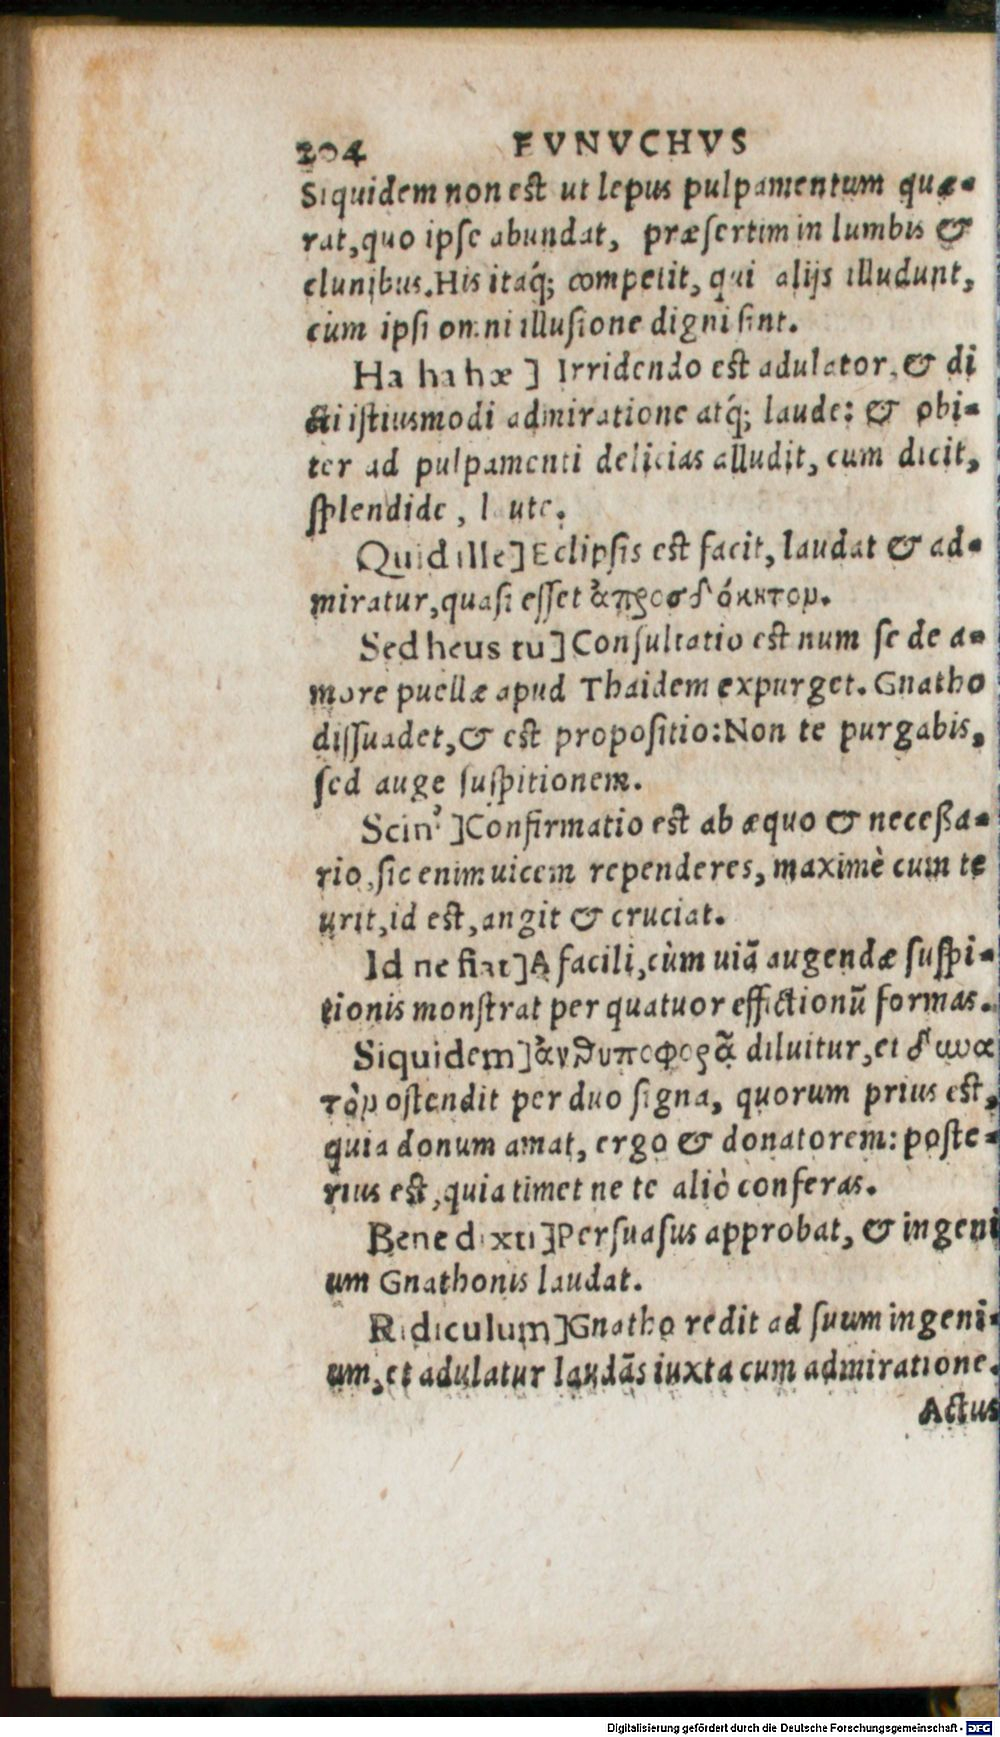 204 EVNVCHVS
Siquidem non est ut lepus pulpamentum quæ-
rat, quo ipse abundat, præsertim in lumbis &
clunibus. His itaq́; competit, qui alijs illudunt,
cùm ipsi omni illusione digni sint.
Ha ha hæ ] Irridendo est adulator, & di
cti istiusmodi admiratione atq́; laude: & obi-
ter ad pulpamenti delicias alludit, cum dicit,
splendide, laute.
Quid ille ] Eclipsis est facit, laudat & ad-
miratur, quasi esset ἀπροσδόκητομ.
Sed heus tu ] Consultatio est num se de a-
more puellæ apud Thaidem expurget. Gnatho
dissuadet, & est propositio: Non te purgabis,
sed auge suspitionem.
Scin' ] Confirmatio est ab æquo & necessa-
rio, sic enim uicem rependeres, maximè cum te
urit, id est, angit & cruciat.
Id ne fiat ] A facili, cùm uiã augendæ suspi-
tionis monstrat per quatuor effictionũ formas.
Siquidem ] ἀνθυποφορᾶ diluitur, et δυνα
τὸμ ostendit per duo signa, quorum prius est,
quia donum amat, ergo & donatorem: poste-
rius est, quia timet ne te aliò conferas.
Bene dixti ] Persuasus approbat, & ingeni
um Gnathonis laudat.
Ridiculum ] Gnatho redit ad suum ingeni-
um, et adulatur laudãs iuxta cum admiratione.
Actus
Digitalisierung gefördert durch die Deutsche Forschungsgemeinschaft - DFG